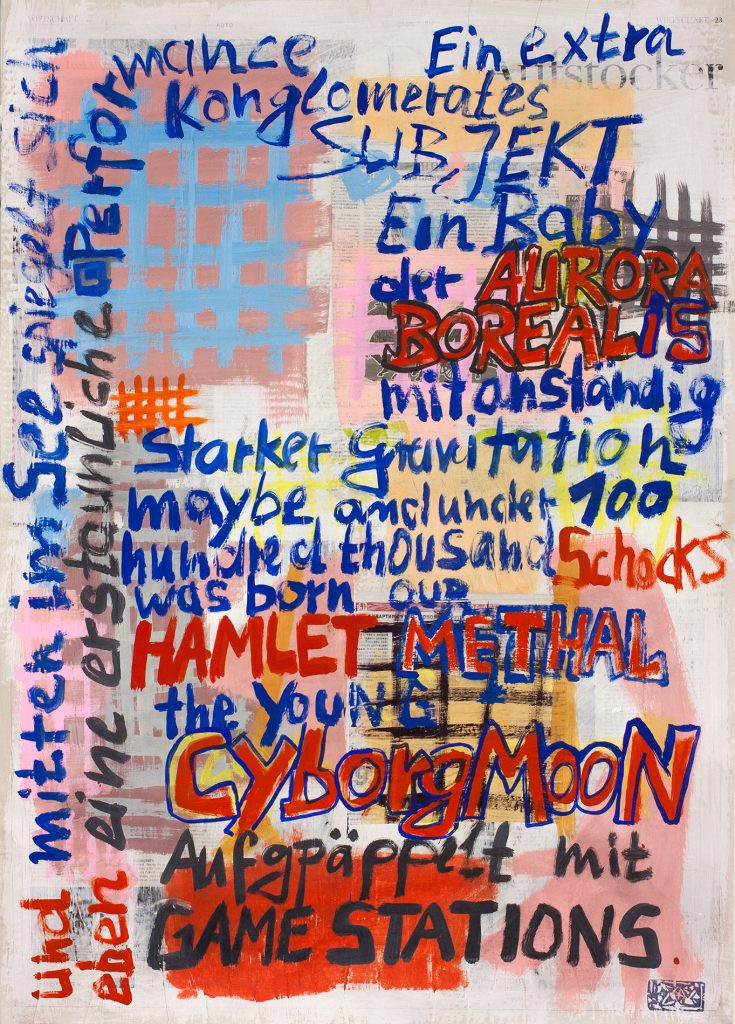 WIRTSCHAFT
AUTO
23
Aufstocker
und mitten im See spiegelt sich
eben eine erstaunliche Performance
Ein extra
Konglomerates
SUBJEKT
Ein Baby
der AURORA
BOREALIS
mit anständig
starker Gravitation
maybe and under 100
hundred thousand Schocks
was born our
HAMLET METHAL
the YOUNG
CyborgMooN
Aufgpäppelt mit
GAME STATIONS.